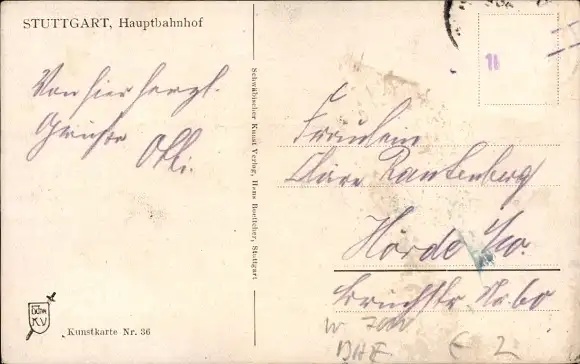 STUTTGART, Hauptbahnhof
Von hier herzl.
Grüsse
Otti.
Schwäbischer Kunst Verlag, Hans Boettcher, Stuttgart
Kunstkarte Nr. 36
Fräulein
Kläre Rautenberg
Hörde
Bruchstr. No. 60